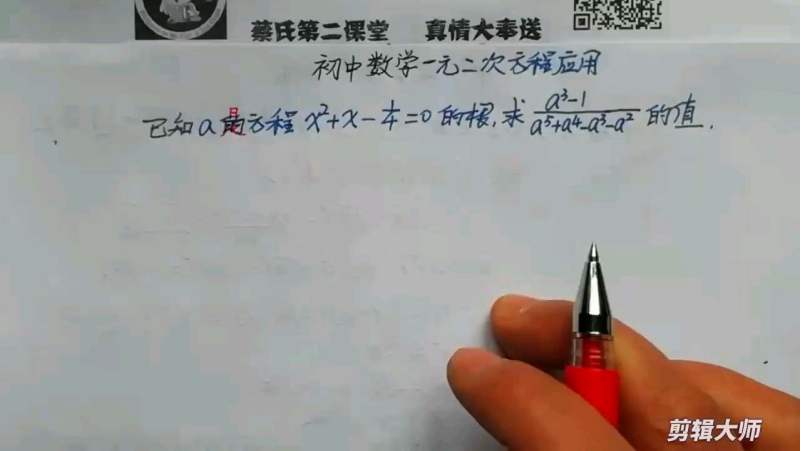 蔡氏第二课堂 真情大奉送
初中数学一元二次方程应用
已知a是方程 x²+x-1/4=0 的根,求 (a³-1)/(a⁵+a⁴-a³-a²) 的值.
剪辑大师